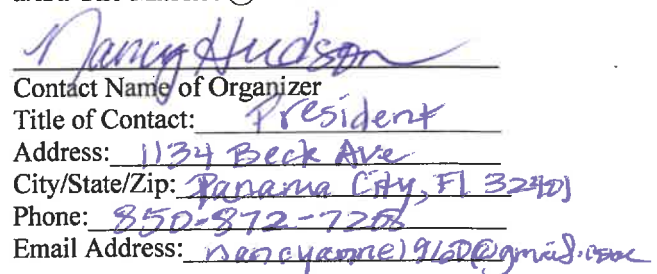 Nancy Hudson
Contact Name of Organizer
Title of Contact: President
Address: 1134 Beck Ave
City/State/Zip: Panama City, Fl 32401
Phone: 850-872-7208
Email Address: nancyanne1960@gmail.com